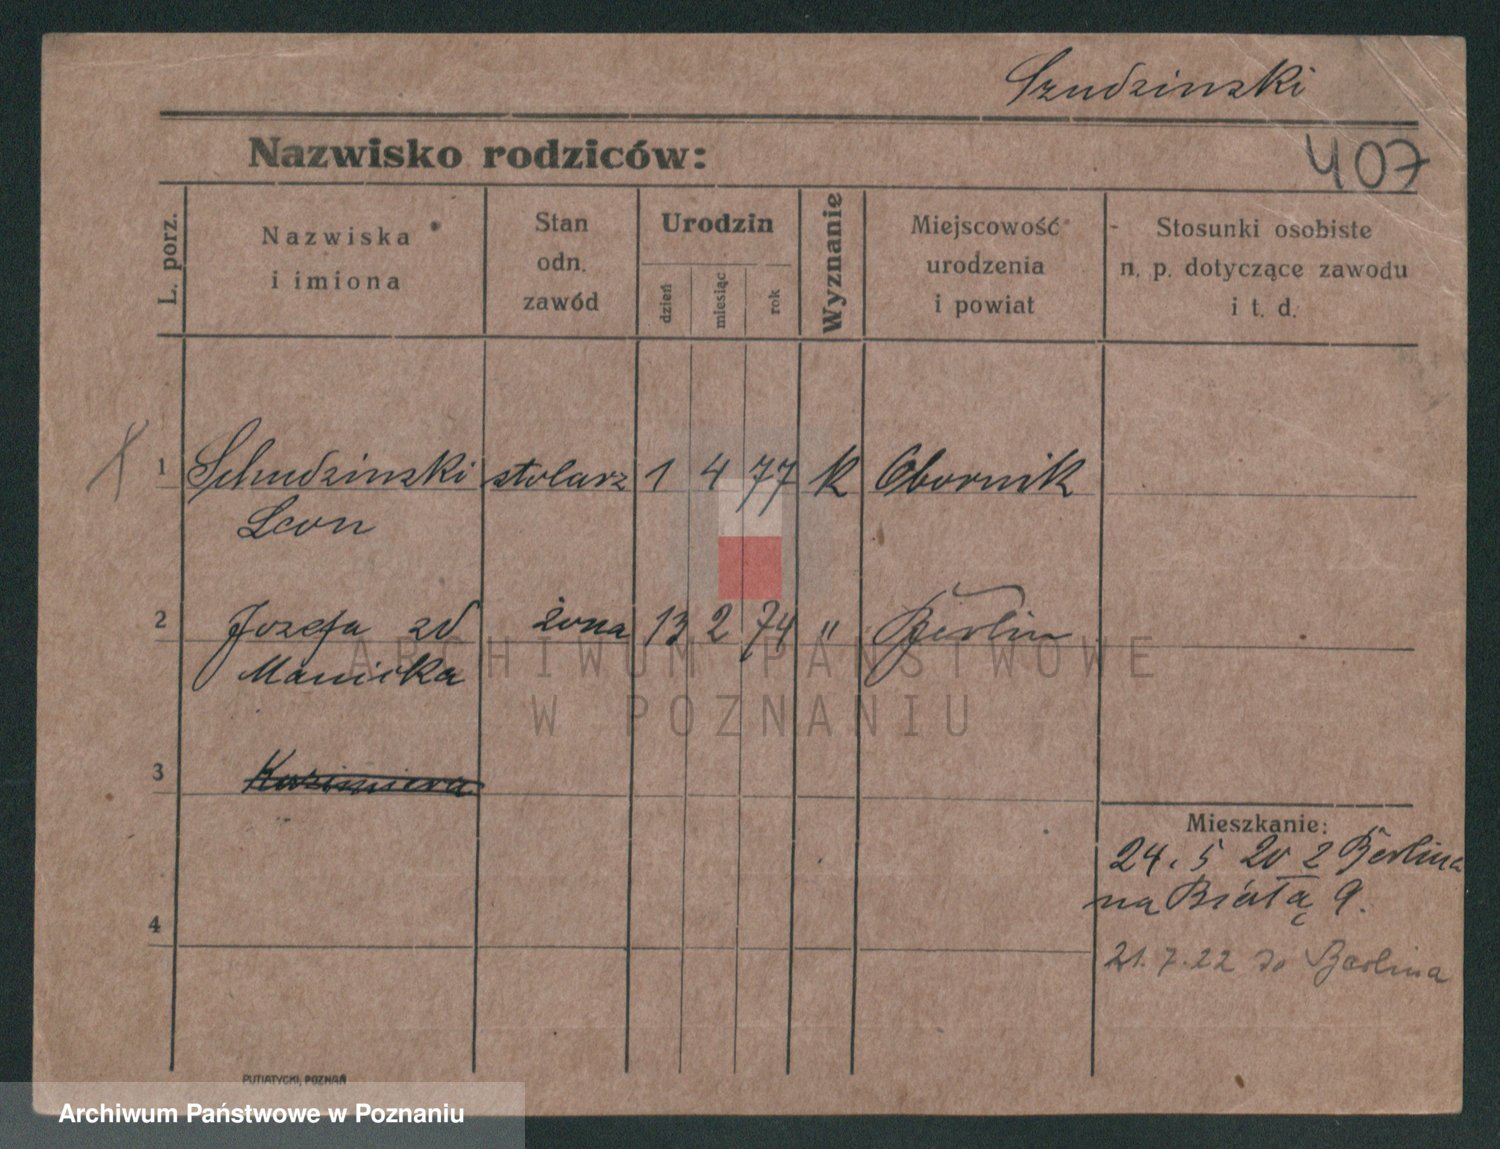 Szudzinski
Nazwisko rodziców:
407
L. porz.
Nazwiska
i imiona
Stan
odn.
zawód
Urodzin
dzień
miesiąc
rok
Wyznanie
Miejscowość
urodzenia
i powiat
Stosunki osobiste
n. p. dotyczące zawodu
i t. d.
1 Schudzinski stolarz 1 4 77 k Obornik
Leon
2 Jozefa zd żona 13 2 74 " Berlin
Manicka
3 Kazimiera
Mieszkanie:
24. 5 20 z Berlina
na Białą 9.
4
21. 7. 22 do Berlina
ARCHIWUM PAŃSTWOWE
W POZNANIU
PUTIATYCKI, POZNAŃ
Archiwum Państwowe w Poznaniu